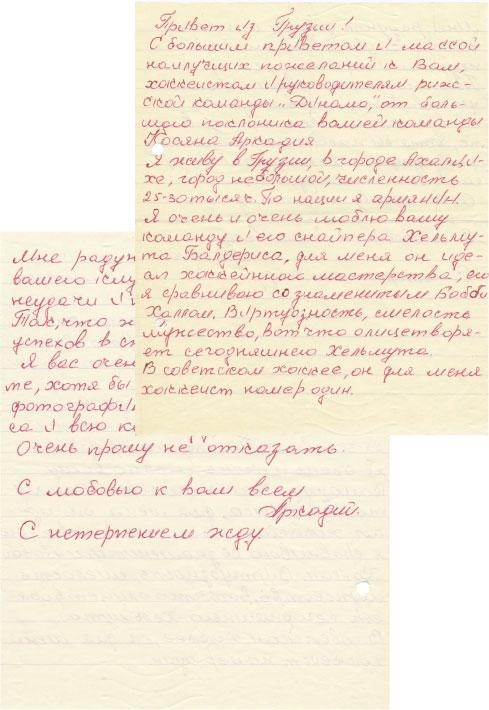 Привет из Грузии!
С большим приветом и массой
наилучших пожеланий к Вам,
хоккеистам и руководителям риж-
ской команды „Динамо," от боль-
шого поклоника вашей команды
Косяна Аркадия
Я живу в Грузии, в городе Ахалци-
хе, город небольшой, численность
25-30 тысяч. По нации я армянин.
Я очень и очень люблю вашу
команду и его снайпера Хельму-
та Балдериса, для меня он иде-
ал хоккейного мастерства, его
я сравниваю со знаменитым Бобби
Халлом. Виртуозность, смелость
мужество, вот что олицетворя-
ет сегодняшнего Хельмута.
В советском хоккее, он для меня
хоккеист номер один.
Мне радую
вашего
неудачи и
Так, что
успехов в
Я вас очен
те, хотя бы
фотографи
са и всю к
Очень прошу не отказать.
С любовью к вам всем
Аркадий.
С нетерпением жду